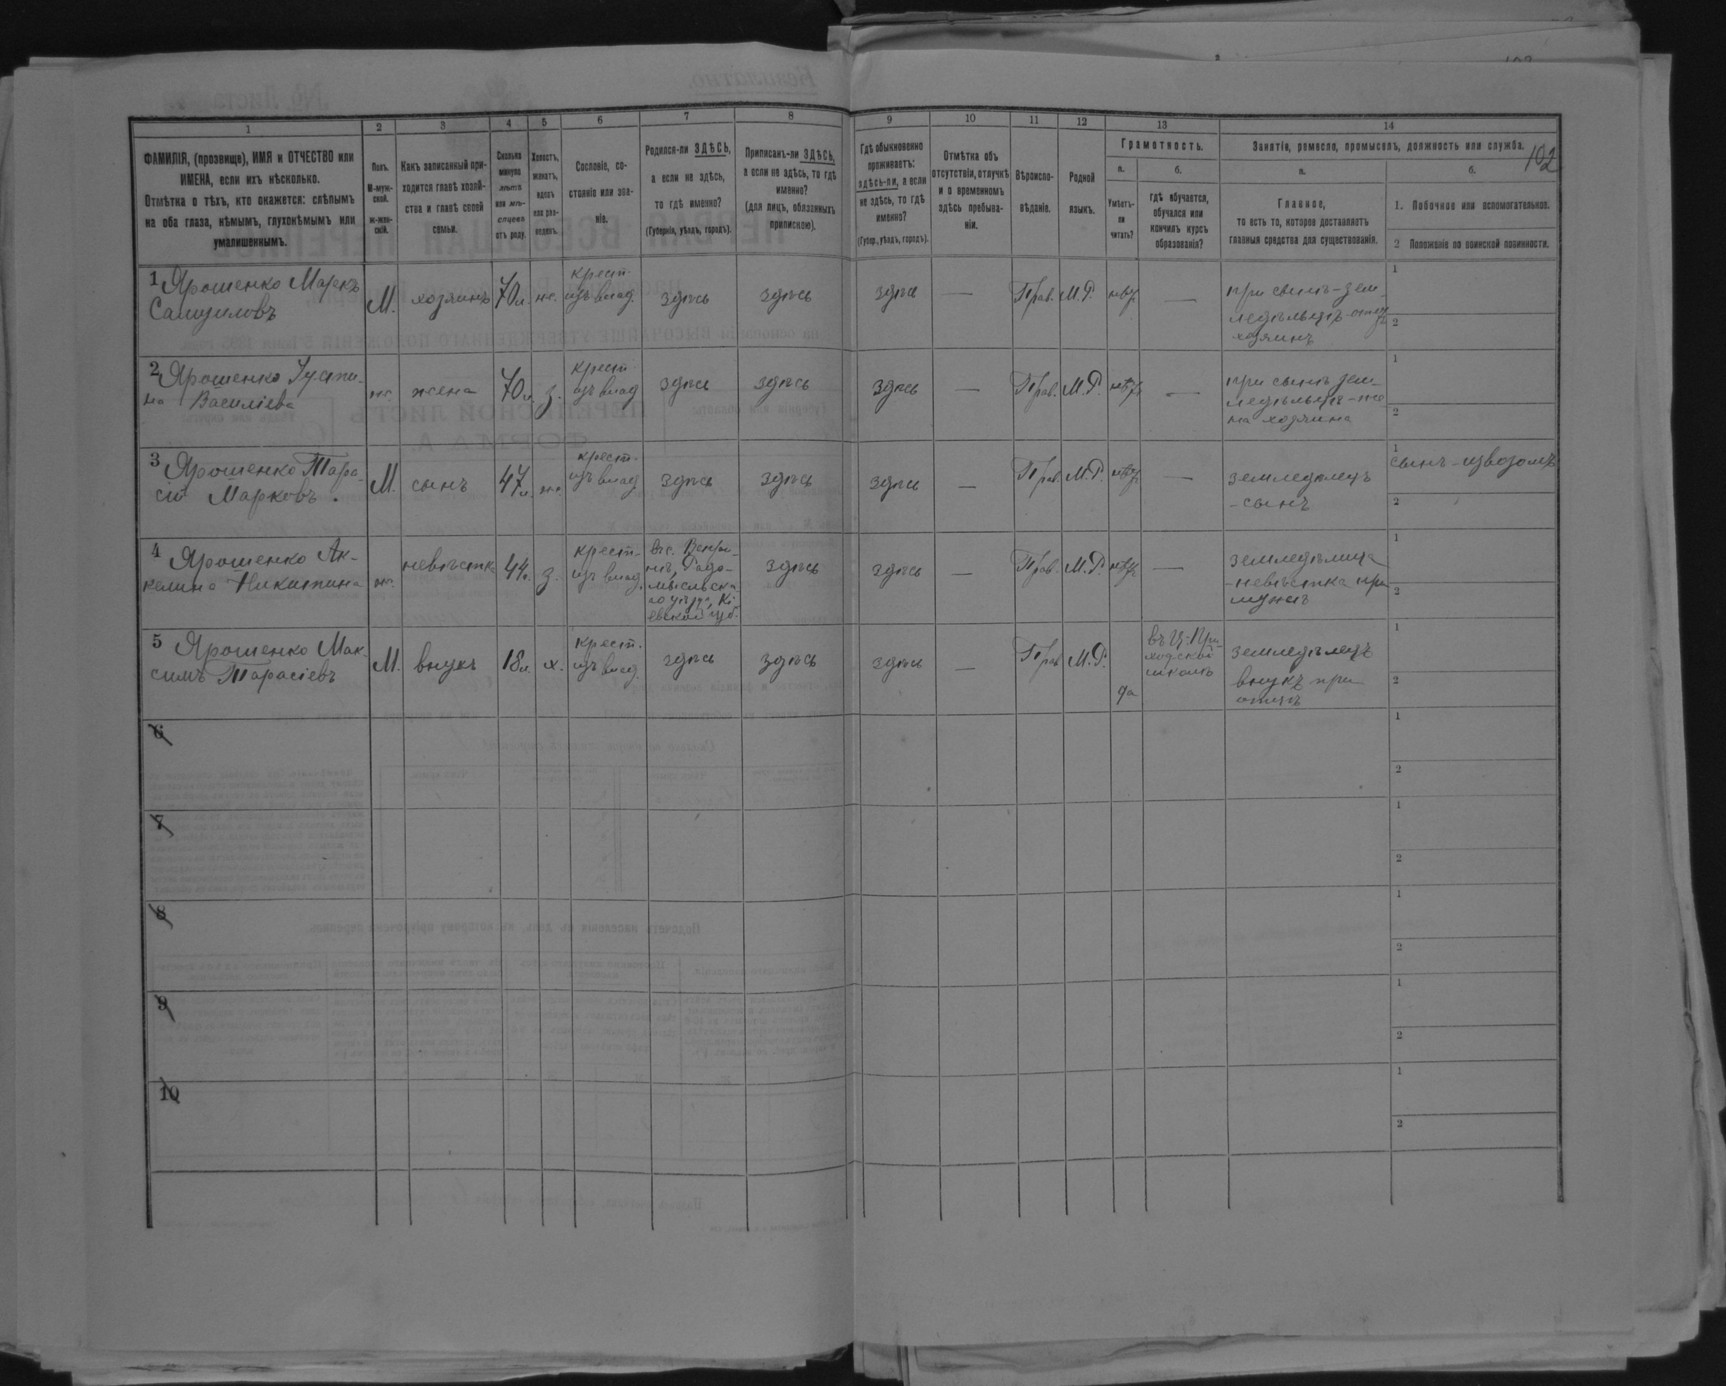 102
1
2
3
4
5
6
7
8
9
10
11
12
13
14
ФАМИЛІЯ, (прозвище), ИМЯ и ОТЧЕСТВО или
ИМЕНА, если ихъ нѣсколько.
Отмѣтка о тѣхъ, кто окажется: слѣпымъ
на оба глаза, нѣмымъ, глухонѣмымъ или
умалишеннымъ.
Полъ.
М-муж-
ской.
ж-жен-
скій.
Какъ записанный при-
ходится главѣ хозяй-
ства и главѣ своей
семьи.
Сколько
минуло
лѣтъ
или мѣ-
сяцевъ
отъ роду.
Холостъ,
женатъ,
вдовъ
или раз-
веденъ.
Сословіе, со-
стояніе или зва-
ніе.
Родился-ли ЗДѢСЬ,
а если не здѣсь,
то гдѣ именно?
(Губернія, уѣздъ, городъ).
Приписанъ-ли ЗДѢСЬ,
а если не здѣсь, то гдѣ
именно?
(для лицъ, обязанныхъ
припискою).
Гдѣ обыкновенно
проживаетъ:
здѣсь-ли, а если
не здѣсь, то гдѣ
именно?
(Губер., уѣздъ, городъ).
Отмѣтка объ
отсутствіи, отлучкѣ
и о временномъ
здѣсь пребыва-
ніи.
Вѣроиспо-
вѣданіе.
Родной
языкъ.
Грамотность.
а.
Умѣетъ-
ли
читать?
б.
гдѣ обучается,
обучался или
кончилъ курсъ
образованія?
Занятіе, ремесло, промыселъ, должность или служба.
а.
Главное,
то есть то, которое доставляетъ
главныя средства для существованія.
б.
1. Побочное или вспомогательное.
2 Положеніе по воинской повинности.
1 Ярошенко Маркъ
Самуиловъ
М.
хозяинъ
70 л.
ж.
крест.
изъ влад.
здѣсь
здѣсь
здѣсь
—
Прав.
М.Р.
нѣтъ
—
при сынѣ-зем-
ледѣльцѣ-отецъ
хозяинъ
1
2
2 Ярошенко Усти-
на Василіева
ж.
жена
70 л.
з.
крест.
изъ влад.
здѣсь
здѣсь
здѣсь
—
Прав.
М.Р.
нѣтъ
—
при сынѣ зем-
ледѣльцѣ-же-
на хозяина
1
2
3 Ярошенко Тара-
сій Марковъ.
М.
сынъ
47 л.
ж.
крест.
изъ влад.
здѣсь
здѣсь
здѣсь
—
Прав.
М.Р.
нѣтъ
—
земледѣлецъ
-сынъ
1
сынъ-извозомъ
2
4 Ярошенко Ак-
килина Никитина
ж.
невѣстка
44 л.
з.
крест.
изъ влад.
въ с.
Радо-
мысльска-
го уѣзда, Кі-
евской губ.
здѣсь
здѣсь
—
Прав.
М.Р.
нѣтъ
—
земледѣлица
-невѣстка при
мужѣ
1
2
5 Ярошенко Мак-
симъ Тарасіевъ
М.
внукъ
18 л.
х.
крест.
изъ влад.
здѣсь
здѣсь
здѣсь
—
Прав.
М.Р.
да
въ Ц.-При-
ходской
школѣ
земледѣлецъ
внукъ при
отцѣ
1
2
6
1
2
7
1
2
8
1
2
9
1
2
10
1
2